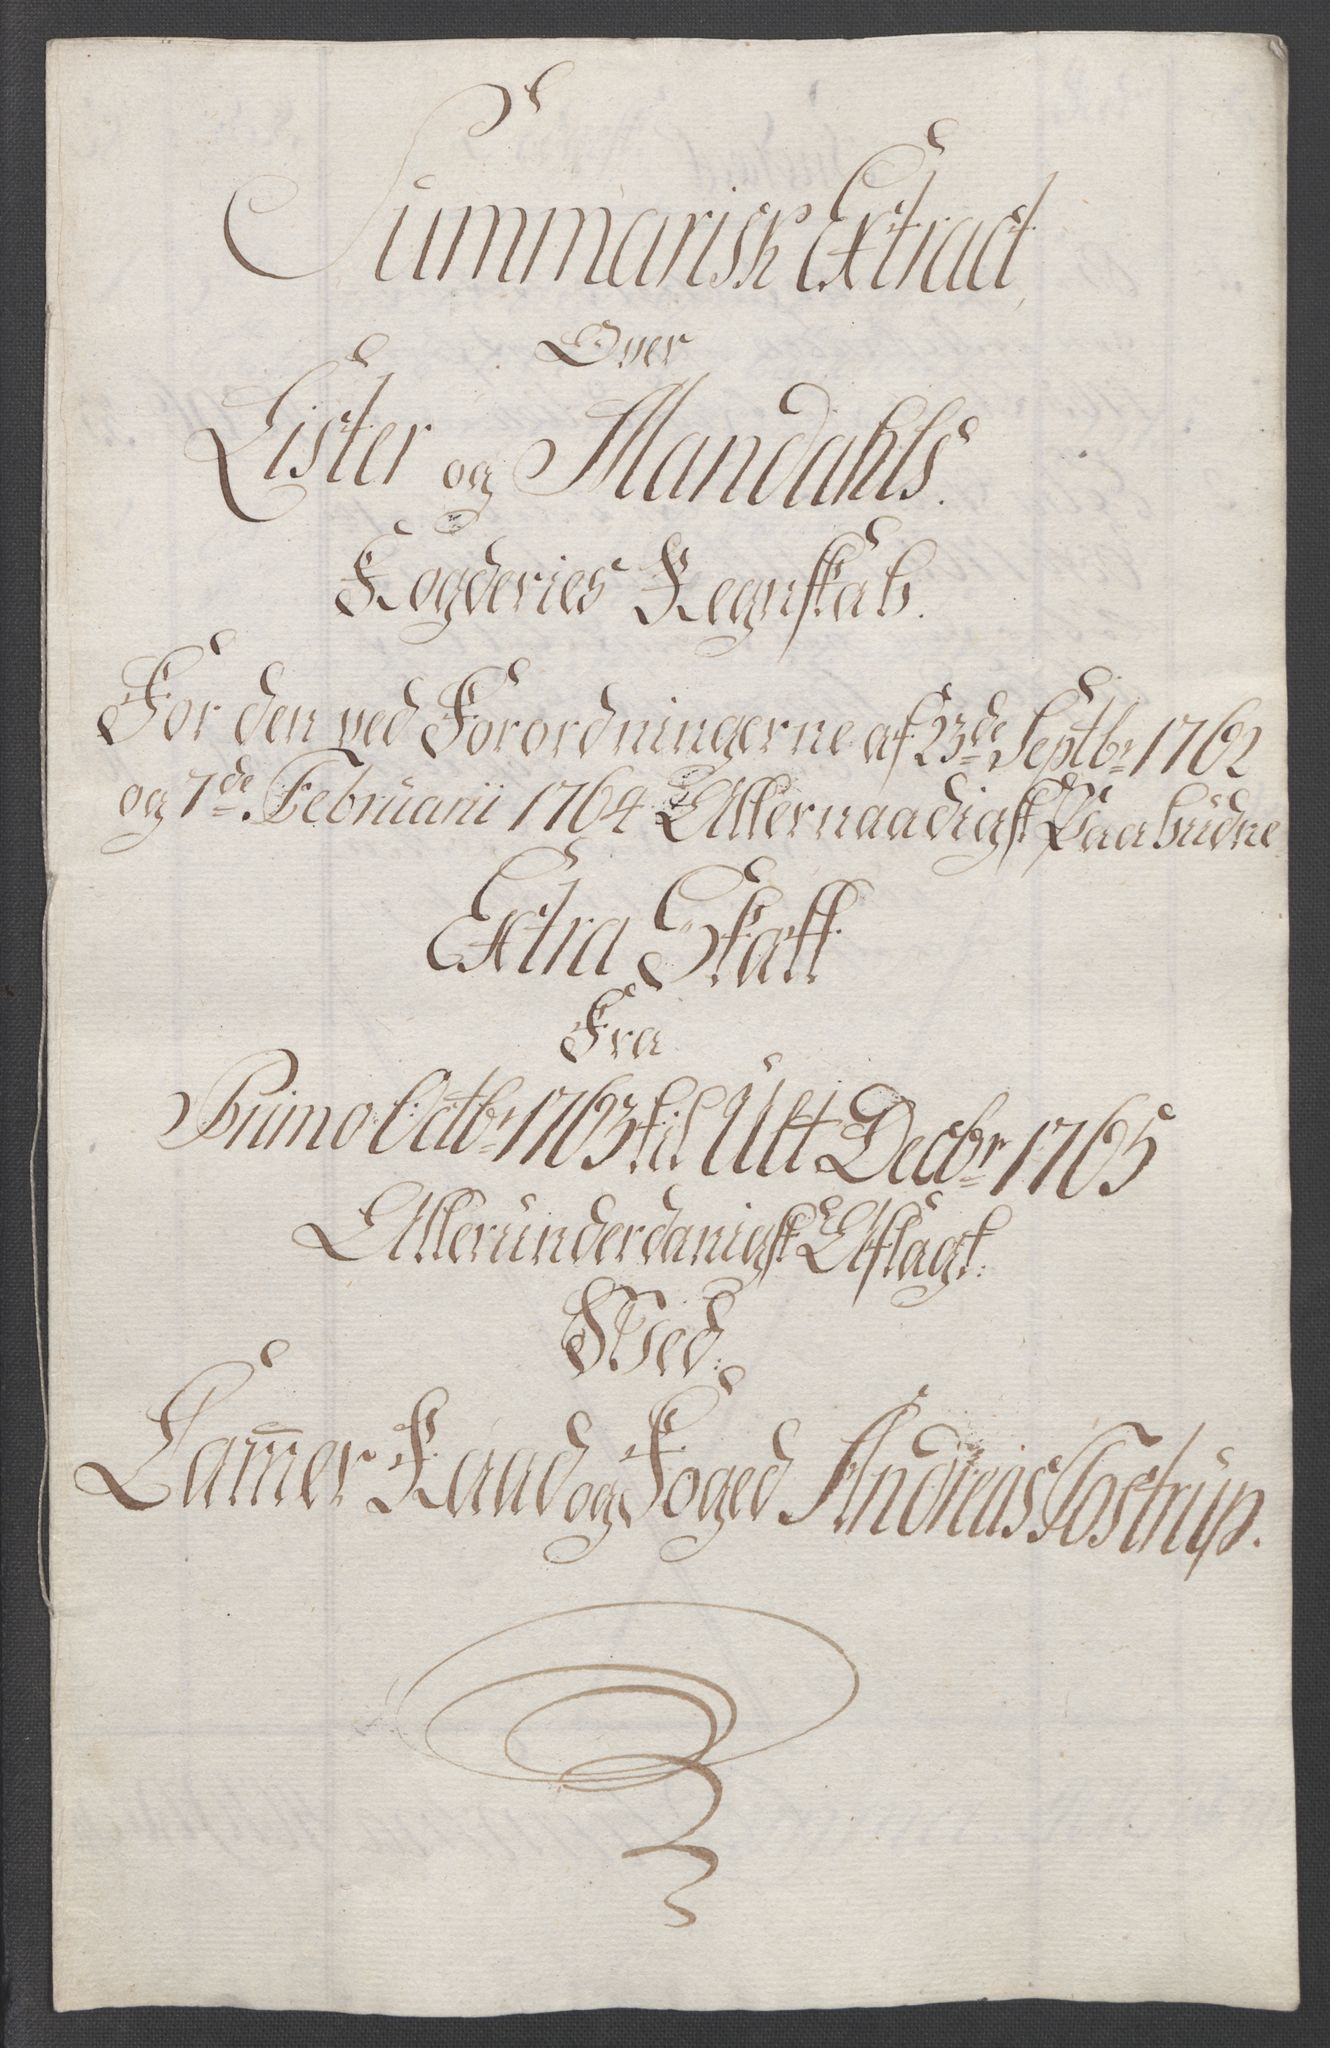 Summarisk Extract
Over
Lister og Mandahls.
Fogderies Regnskab.
For den ved Forordningerne af 23de Septbr 1762
og 7de Februarii 1764 Allernaadigst Paabüdne
Extra Skatt
Fra
Primo Octbr 1763 til Ult Decbr 1765
Alleründerdanigst Aflagt.
Med
Cam̅er Raad og Foged Andreas Tostrüp.